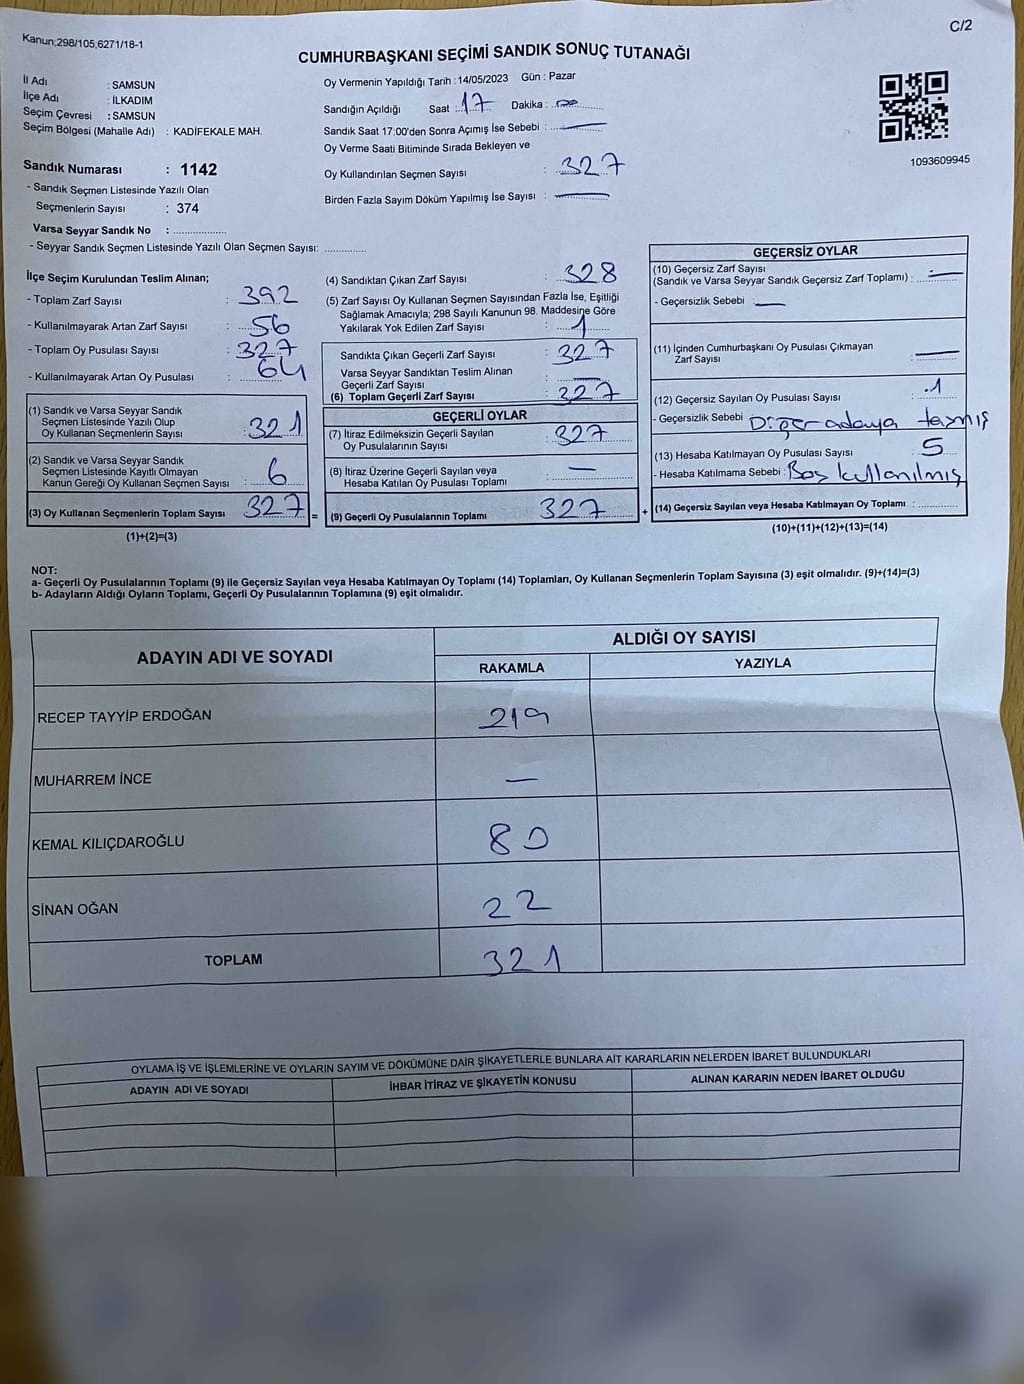 Kanun;298/105;6271/18-1
C/2
CUMHURBAŞKANI SEÇİMİ SANDIK SONUÇ TUTANAĞI
İl Adı : SAMSUN
İlçe Adı : İLKADIM
Seçim Çevresi : SAMSUN
Seçim Bölgesi (Mahalle Adı) : KADIFEKALE MAH.
Sandık Numarası : 1142
- Sandık Seçmen Listesinde Yazılı Olan
Seçmenlerin Sayısı : 374
Varsa Seyyar Sandık No : ....................
- Seyyar Sandık Seçmen Listesinde Yazılı Olan Seçmen Sayısı: ...............
Oy Vermenin Yapıldığı Tarih : 14/05/2023 Gün : Pazar
Sandığın Açıldığı Saat : 17 Dakika : 00
Sandık Saat 17:00'den Sonra Açımış İse Sebebi : —
Oy Verme Saati Bitiminde Sırada Bekleyen ve
Oy Kullandırılan Seçmen Sayısı : 327
Birden Fazla Sayım Döküm Yapılmış İse Sayısı : —
1093609945
İlçe Seçim Kurulundan Teslim Alınan;
- Toplam Zarf Sayısı : 392
- Kullanılmayarak Artan Zarf Sayısı : 56
- Toplam Oy Pusulası Sayısı : 327
- Kullanılmayarak Artan Oy Pusulası : 64
(1) Sandık ve Varsa Seyyar Sandık
Seçmen Listesinde Yazılı Olup
Oy Kullanan Seçmenlerin Sayısı : 321
(2) Sandık ve Varsa Seyyar Sandık
Seçmen Listesinde Kayıtlı Olmayan
Kanun Gereği Oy Kullanan Seçmen Sayısı : 6
(3) Oy Kullanan Seçmenlerin Toplam Sayısı 327 =
(1)+(2)=(3)
(4) Sandıktan Çıkan Zarf Sayısı : 328
(5) Zarf Sayısı Oy Kullanan Seçmen Sayısından Fazla İse, Eşitliği
Sağlamak Amacıyla; 298 Sayılı Kanunun 98. Maddesine Göre
Yakılarak Yok Edilen Zarf Sayısı : 1
Sandıkta Çıkan Geçerli Zarf Sayısı : 327
Varsa Seyyar Sandıktan Teslim Alınan
Geçerli Zarf Sayısı : —
(6) Toplam Geçerli Zarf Sayısı : 327
GEÇERLİ OYLAR
(7) İtiraz Edilmeksizin Geçerli Sayılan
Oy Pusulalarının Sayısı : 327
(8) İtiraz Üzerine Geçerli Sayılan veya
Hesaba Katılan Oy Pusulası Toplamı : —
(9) Geçerli Oy Pusulalarının Toplamı 327 +
GEÇERSİZ OYLAR
(10) Geçersiz Zarf Sayısı
(Sandık ve Varsa Seyyar Sandık Geçersiz Zarf Toplamı) : —
- Geçersizlik Sebebi : —
(11) İçinden Cumhurbaşkanı Oy Pusulası Çıkmayan
Zarf Sayısı : —
(12) Geçersiz Sayılan Oy Pusulası Sayısı : 1
- Geçersizlik Sebebi : Diğer adaya taşmış
(13) Hesaba Katılmayan Oy Pusulası Sayısı : 5
- Hesaba Katılmama Sebebi : Boş kullanılmış
(14) Geçersiz Sayılan veya Hesaba Katılmayan Oy Toplamı : ............
(10)+(11)+(12)+(13)=(14)
NOT:
a- Geçerli Oy Pusulalarının Toplamı (9) ile Geçersiz Sayılan veya Hesaba Katılmayan Oy Toplamı (14) Toplamları, Oy Kullanan Seçmenlerin Toplam Sayısına (3) eşit olmalıdır. (9)+(14)=(3)
b- Adayların Aldığı Oyların Toplamı, Geçerli Oy Pusulalarının Toplamına (9) eşit olmalıdır.
ADAYIN ADI VE SOYADI ALDIĞI OY SAYISI
RAKAMLA YAZIYLA
RECEP TAYYİP ERDOĞAN 219
MUHARREM İNCE —
KEMAL KILIÇDAROĞLU 80
SİNAN OĞAN 22
TOPLAM 321
OYLAMA İŞ VE İŞLEMLERİNE VE OYLARIN SAYIM VE DÖKÜMÜNE DAİR ŞİKAYETLERLE BUNLARA AİT KARARLARIN NELERDEN İBARET BULUNDUKLARI
ADAYIN ADI VE SOYADI İHBAR İTİRAZ VE ŞİKAYETİN KONUSU ALINAN KARARIN NEDEN İBARET OLDUĞU